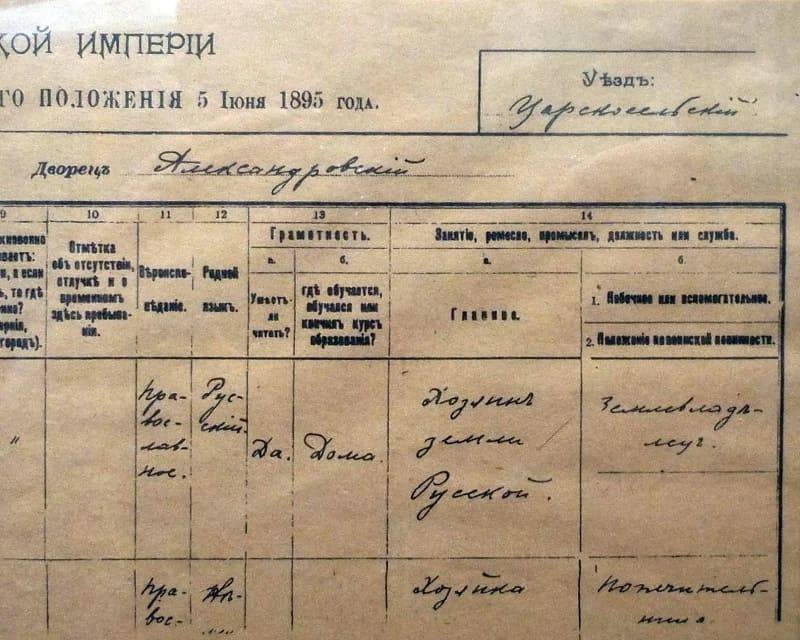 КОЙ ИМПЕРІИ
ГО ПОЛОЖЕНІЯ 5 Іюня 1895 года.
Уѣздъ:
Царскосельскій
Дворецъ Александровскій
9 10 11 12 13 14
Отмѣтка
объ отсутствіи,
отлучкѣ и о
временномъ
здѣсь пребыва-
ніи.
Вѣроиспо-
вѣданіе.
Родной
языкъ.
Грамотность.
а.
Умѣетъ-
ли
читать?
б.
гдѣ обучается,
обучался или
кончилъ курсъ
образованія?
Занятіе, ремесло, промыселъ, должность или служба.
а.
Главное.
б.
1. Побочное или вспомогательное.
2. Положеніе по воинской повинности.
"
Пра-
вос-
лав-
ное.
Рус-
скій.
Да.
Дома.
Хозяинъ
земли
Русской.
Землевладѣ-
лецъ.
Пра-
вос-
Хозяйка
Попечитель-
ница